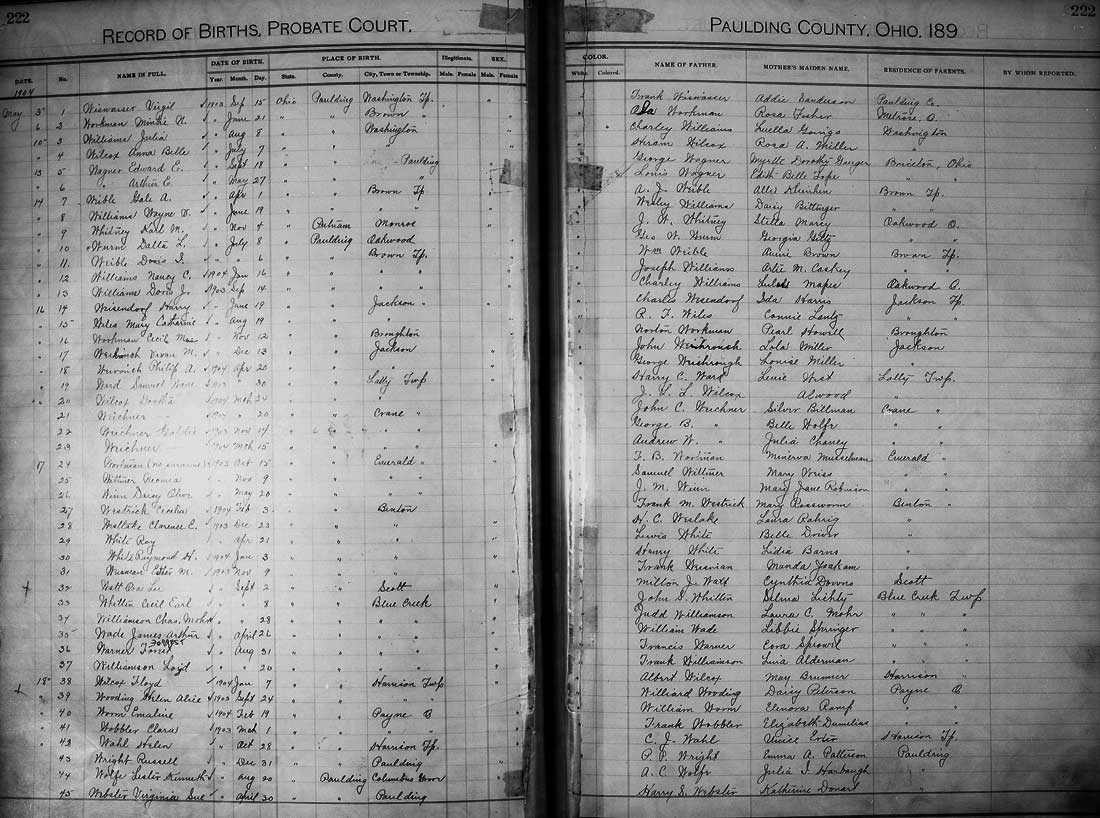 222
222
RECORD OF BIRTHS, PROBATE COURT,
PAULDING COUNTY, OHIO, 189
DATE. No. NAME IN FULL. DATE OF BIRTH. PLACE OF BIRTH. Illegitimate. SEX. COLOR. NAME OF FATHER. MOTHER'S MAIDEN NAME. RESIDENCE OF PARENTS. BY WHOM REPORTED.
Year. Month. Day. State. County. City, Town or Township. Male. Female Male. Female White. Colored.
1904
May 3 1 Wiswasser Virgil 1903 Sep 15 Ohio Paulding Washington Tp. Frank Wiswasser Addie Sanderson Paulding Co.
" 6 2 Workman Minnie " June 21 " " Brown " Workman Rosa Fisher Melrose, O.
" 10 3 Williams Julia " Aug 8 " " Washington Charley Williams Luella Washington
" 4 Wilcox Anna Belle " July 7 " " " Hiram Wilcox Rosa A. Miller "
" 13 5 Wagner Edward E. " Sept 18 " " Paulding George Wagner Myrtle Dorothy Briceton, Ohio
" 6 " Arthur E. " May 27 " " Louis Wagner Edith Belle Pope " "
" 14 7 Weible Gale A. " Apr 1 " " Brown Tp A. J. Weible Allie Brown Tp.
" 8 Williams Wayne " June 19 " " " " Wesley Williams Daisy Bittinger " "
" 9 Whitney Karl M. " Nov 4 " Putnam Monroe J. W. Whitney Stella Marcy Oakwood O.
" 10 Wurm Dalta L. " July 8 " Paulding Oakwood Geo W. Wurm Georgia " "
" 11 Weible Doris I. " " 6 " " Brown Tp. Wm Weible Anna Brown Brown Tp.
" 12 Williams Nancy C. 1904 Jan 16 " " " " Joseph Williams Artie M. Caskey " "
" 13 Williams Doris Jr 1903 Sep 14 " " " " Charley Williams Mapes Oakwood O.
16 14 Weisendorf Harry " June 19 " " Jackson " Charles Weisendorf Ida Harris Jackson Tp
" 15 Wiles Mary Catherine " Aug 19 " " " R. F. Wiles Connie Lantz " "
" 16 Workman Cecil " Nov 12 " " Broughton Norton Workman Pearl Howell Broughton
" 17 Vivan M. " Dec 13 " " Jackson John Lola Miller Jackson
" 18 Philip A. 1904 Apr 20 " " " George Louise Miller "
" 19 Ward Samuel 1903 " 30 " " Latty Twp Harry C. Ward West Latty Twp.
" 20 Wilcox 1904 Mch 24 " " " J. L. L. Wilcox Atwood "
21 Weichner 20 " " Crane " John C. Weichner Silver Billman Crane "
22 Weichner Goldie Nov 14 " " " George B. " Belle Wolfe " "
23 Weichner Mch 15 " " " " Andrew W. " Julia Chaney " "
17 24 Workman 1903 Oct 15 " " Emerald " F. B. Workman Minerva Musselman Emerald "
25 Wittmer Neomia " Nov 9 " " " " Samuel Wittmer Mary " "
" 26 Winn Daisy " May 20 " " " " J. M. Winn Mary Jane Robinson " "
" 27 Westrick Cecelia 1904 Feb 3 " " Benton Frank M. Westrick Mary Benton "
" 28 Clarence E. 1903 Dec 23 " " " H. C. Laura Rahrig "
" 29 White Ray " Apr 21 " " " Lewis White Belle Driver "
" 30 White Raymond H. 1904 Jan 3 " " " Henry White Lidia Barns "
" 31 Esther M. 1903 Nov 9 " " " Frank Manda Joakam "
32 Watt Ora Lee " Sept 2 " " Scott Milton J. Watt Cynthia Downs Scott
" 33 Whitlin Cecil Earl " " 8 " " Blue Creek John S. Whitlin Selma Blue Creek Twp
" 37 Williamson Chas. Mohr " " 28 " " " Judd Williamson Laura C. Mohr " "
" 35 Wade James Arthur " April 26 " " " William Wade Libbie Springer " "
Forrest
" 36 Warner Forest " Aug 31 " " " Francis Warner Cora Sprowl " "
" 37 Williamson Loyd " " 20 " " " Frank Williamson Lina Alderman " "
18 38 Wilcox Floyd 1904 Jan 7 " " Harrison Twp Albert Wilcox May Brunner Harrison "
" 39 Wooding Helen Alice 1903 Sept 24 " " " " Williard Wooding Daisy Peterson Payne O
" 40 Worm Emaline 1904 Feb 19 " " Payne O William Worm Elenora Ramp " "
" 41 Wobbler Clara 1903 Mch 1 " " " " Frank Wobbler Elizabeth Dumelius " "
" 42 Wahl Helen " Oct 28 " " Harrison Tp. C. J. Wahl Harrison Tp
" 43 Wright Russell " Dec 31 " " Paulding P. P. Wright Emma A. Patterson Paulding
" 44 Wolfe Lester " Aug 20 " Paulding Columbus Grove A. C. Wolfe Julia I. Harbaugh " "
" 45 Webster Virginia Sue " April 30 " " Paulding Harry S. Webster Katherine " "